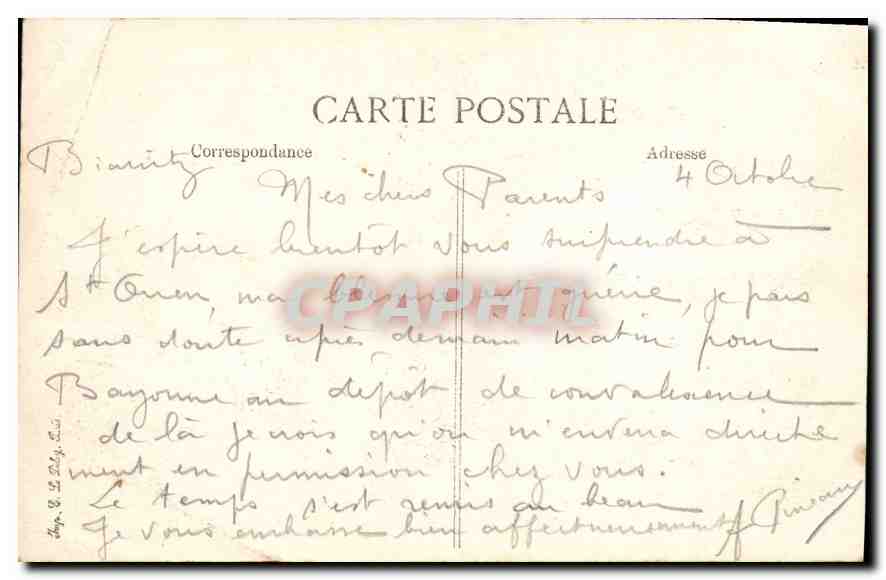 CARTE POSTALE
Correspondance
Adresse
Biarritz
4 Octobre
Mes chers Parents
J'espère bientôt vous surprendre à
St Ouen, ma blessure est guérie, je pars
sans doute après demain matin pour
Bayonne au dépôt de convalescence
de là je crois qu'on m'enverra directe
ment en permission chez vous.
Le temps s'est remis au beau
Je vous embrasse bien affectueusement
Pineau
CPAPHIL
Imp. E. Le Deley, Paris